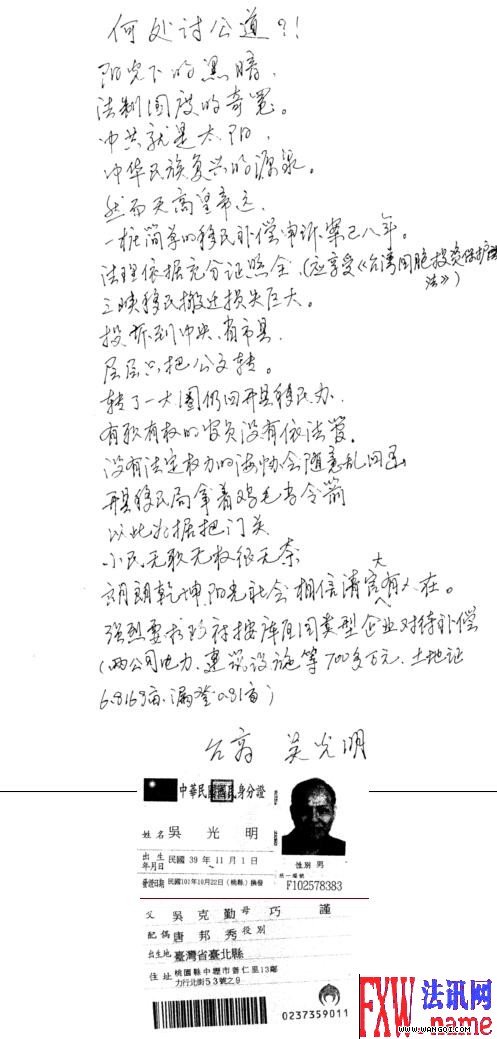 何处讨公道?!
阳光下的黑暗,
法制国度的奇冤。
中共就是太阳,
中华民族复兴的源泉。
然而天高皇帝远,
一桩简单的移民补偿申诉案已八年。
法理依据充分证照全(应享受《台湾同胞投资保护法》)
三峡移民搬迁损失巨大。
投诉到中央、省市县,
层层只把公文转。
转了一大圈仍回开县移民办,
有职有权的官员没有依法管,
没有法定权力的海协会随意乱回函
开县移民局拿着鸡毛当令箭
以此为据把门关
小民无职无权很无奈
朗朗乾坤阳光社会相信清官大有人在。
强烈要求政府按库周类型企业对待补偿
(两公司电力、建筑设施等700多万元、土地证
6.8169亩、漏登0.81亩)
台商 吴光明
中華民國國民身分證
姓名 吳光明
出生年月日 民國39年11月1日
性別 男
發證日期 民國101年10月22日(桃縣)換發
統一編號
F102578383
父 吳克勤 母 巧謹
配偶 唐邦秀 役別
出生地 臺灣省臺北縣
住址 桃園縣中壢市普仁里13鄰
力行北街53號之9
0237359011
FXW 法讯网
www.wangqi.com
name